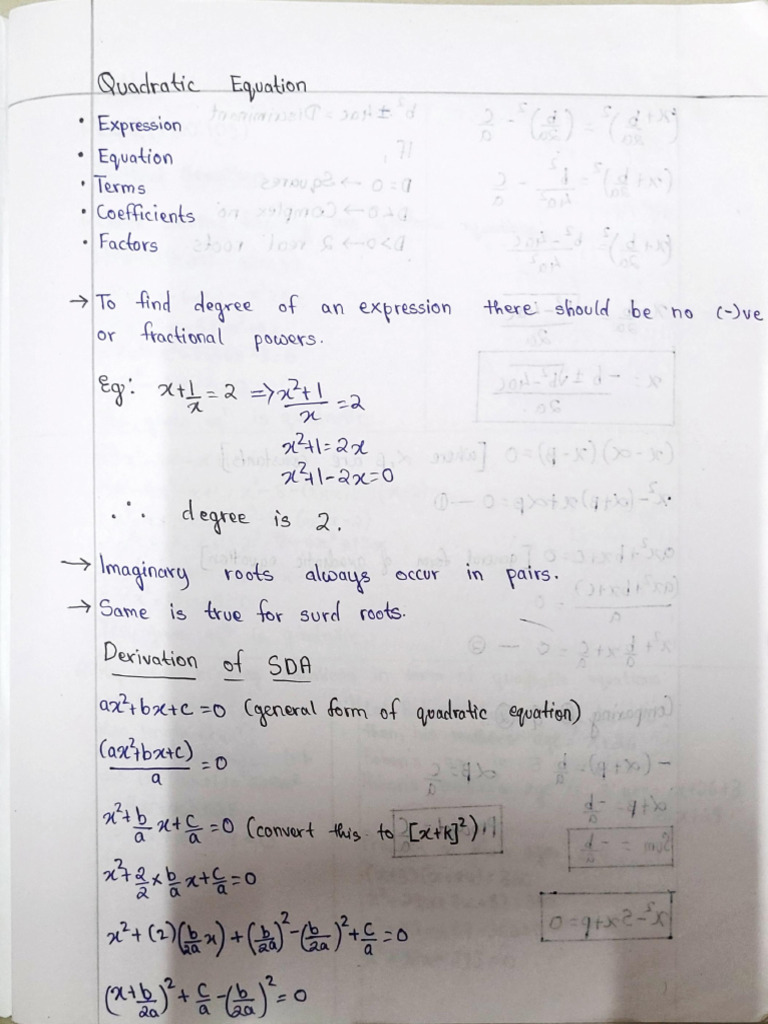 Quadratic Equation
• Expression
• Equation
• Terms
• Coefficients
• Factors
→ To find degree of an expression there should be no (-)ve
or fractional powers.
Eg: x+1/x = 2 ⇒ x²+1/x = 2
x²+1=2x
x²+1-2x=0
∴ degree is 2.
→ Imaginary roots always occur in pairs.
→ Same is true for surd roots.
Derivation of SDA
ax²+bx+c=0 (general form of quadratic equation)
(ax²+bx+c)/a = 0
x²+b/a x+c/a = 0 (convert this to [x+k]²)
x²+2/2 × b/a x+c/a = 0
x²+(2)(b/2a x)+(b/2a)²-(b/2a)²+c/a = 0
(x+b/2a)²+c/a-(b/2a)² = 0